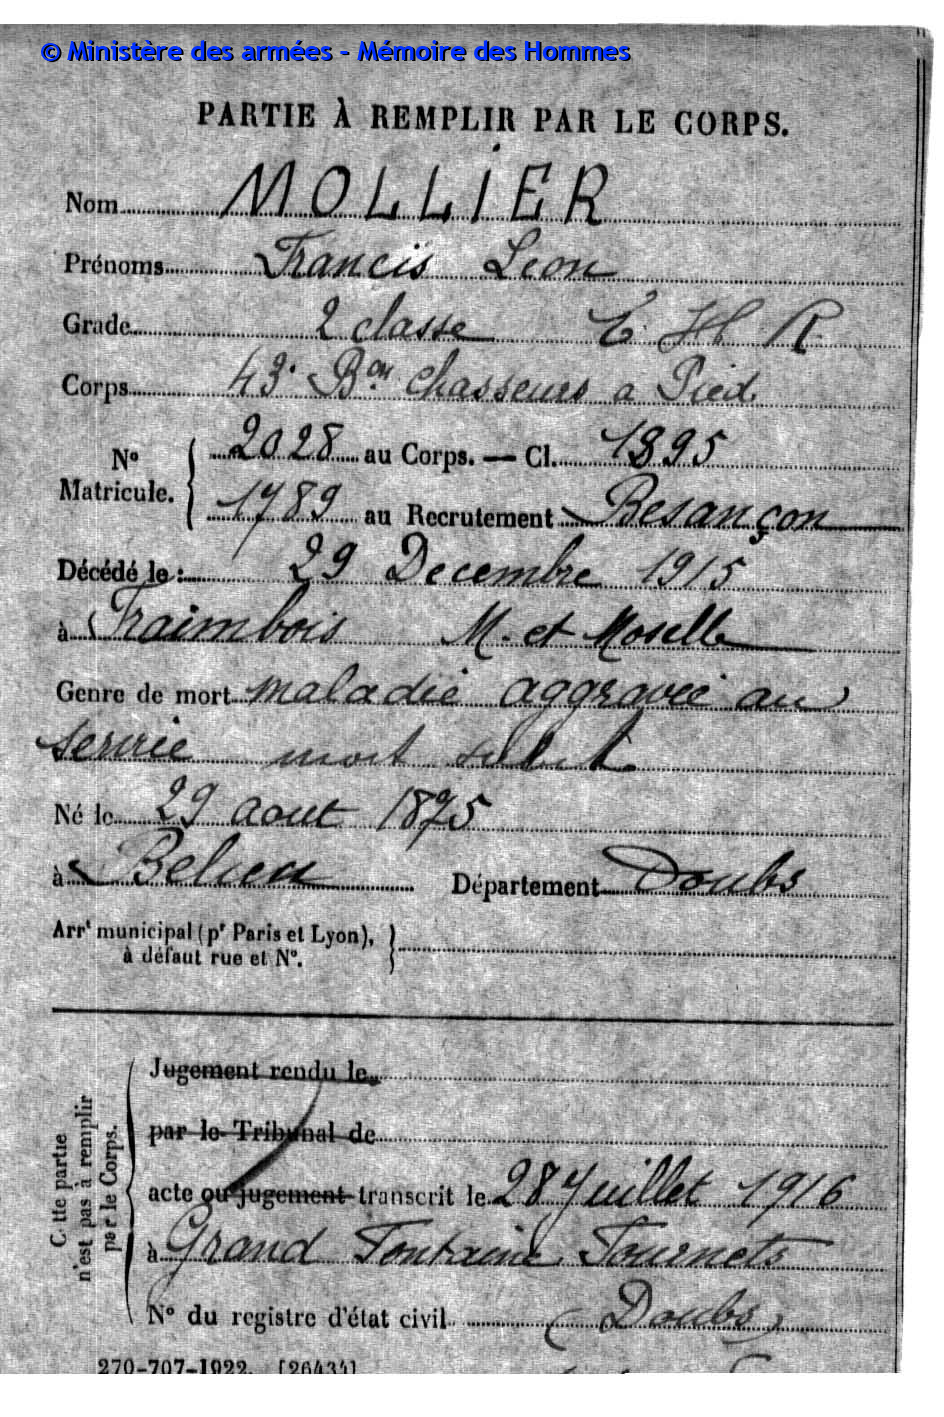 © Ministère des armées - Mémoire des Hommes
PARTIE À REMPLIR PAR LE CORPS.
Nom MOLLIER
Prénoms Francis Léon
Grade 2 classe C. H. R.
Corps 43e Bon chasseurs a Pied
No Matricule. { 2028 au Corps. — Cl. 1895
1789 au Recrutement Besançon
Décédé le : 29 Decembre 1915
à Fraimbois M. et Moselle
Genre de mort maladie aggravée au
service mort subit
Né le 29 aout 1875
à Belieu Département Doubs
Arrt municipal (pr Paris et Lyon),
à défaut rue et No.
Cette partie
n'est pas à remplir
par le Corps.
Jugement rendu le
par le Tribunal de
acte ou jugement transcrit le 28 Juillet 1916
à Grand Fontaine Fournets
No du registre d'état civil (Doubs)
270-707-1922. [26434]